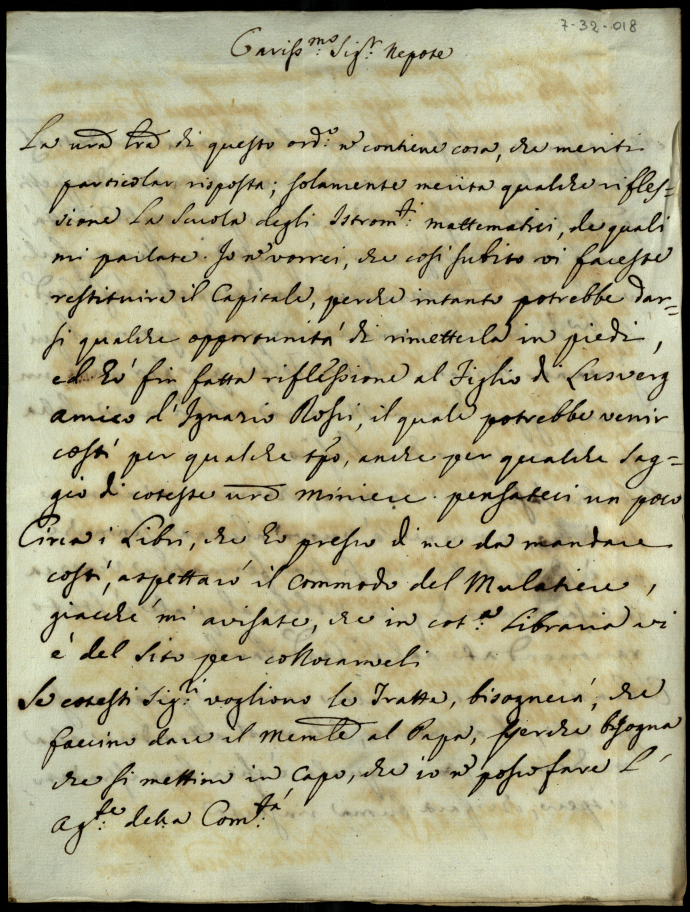 7-32-018
Cariss.mo Sig.r Nepote
La vrã lrã di questo ord.o nõ contiene cosa, che meriti
particolar risposta; solamente merita qualche rifles=
sione La Scuola degli Istrom.ti mattematici, de quali
mi parlate. Io nõ vorrei, che così subito vi faceste
restituire il Capitale, perche intanto potrebbe dar=
si qualche opportunità di rimetterla in piedi,
ed hò fin fatta riflessione al Figlio di Lusverg
amico d'Ignazio Rossi, il quale potrebbe venir
costì per qualche tpo, anche per qualche sag=
gio di coteste vrẽ miniere. pensateci un poco
Circa i Libri, che hò presso di me da mandare
costì, aspettarò il commodo del Mulatiere,
giacchè mi avisate, che in cot.a Libraria vi
è del sito per collocarveli
Se cotesti Sig.ri vogliono le Tratte, bisognerà, che
faccino dare il Memle al Papa, perche bisogna
che si mettino in capo, che io nõ posso fare L'
Ag.te della Com.tà